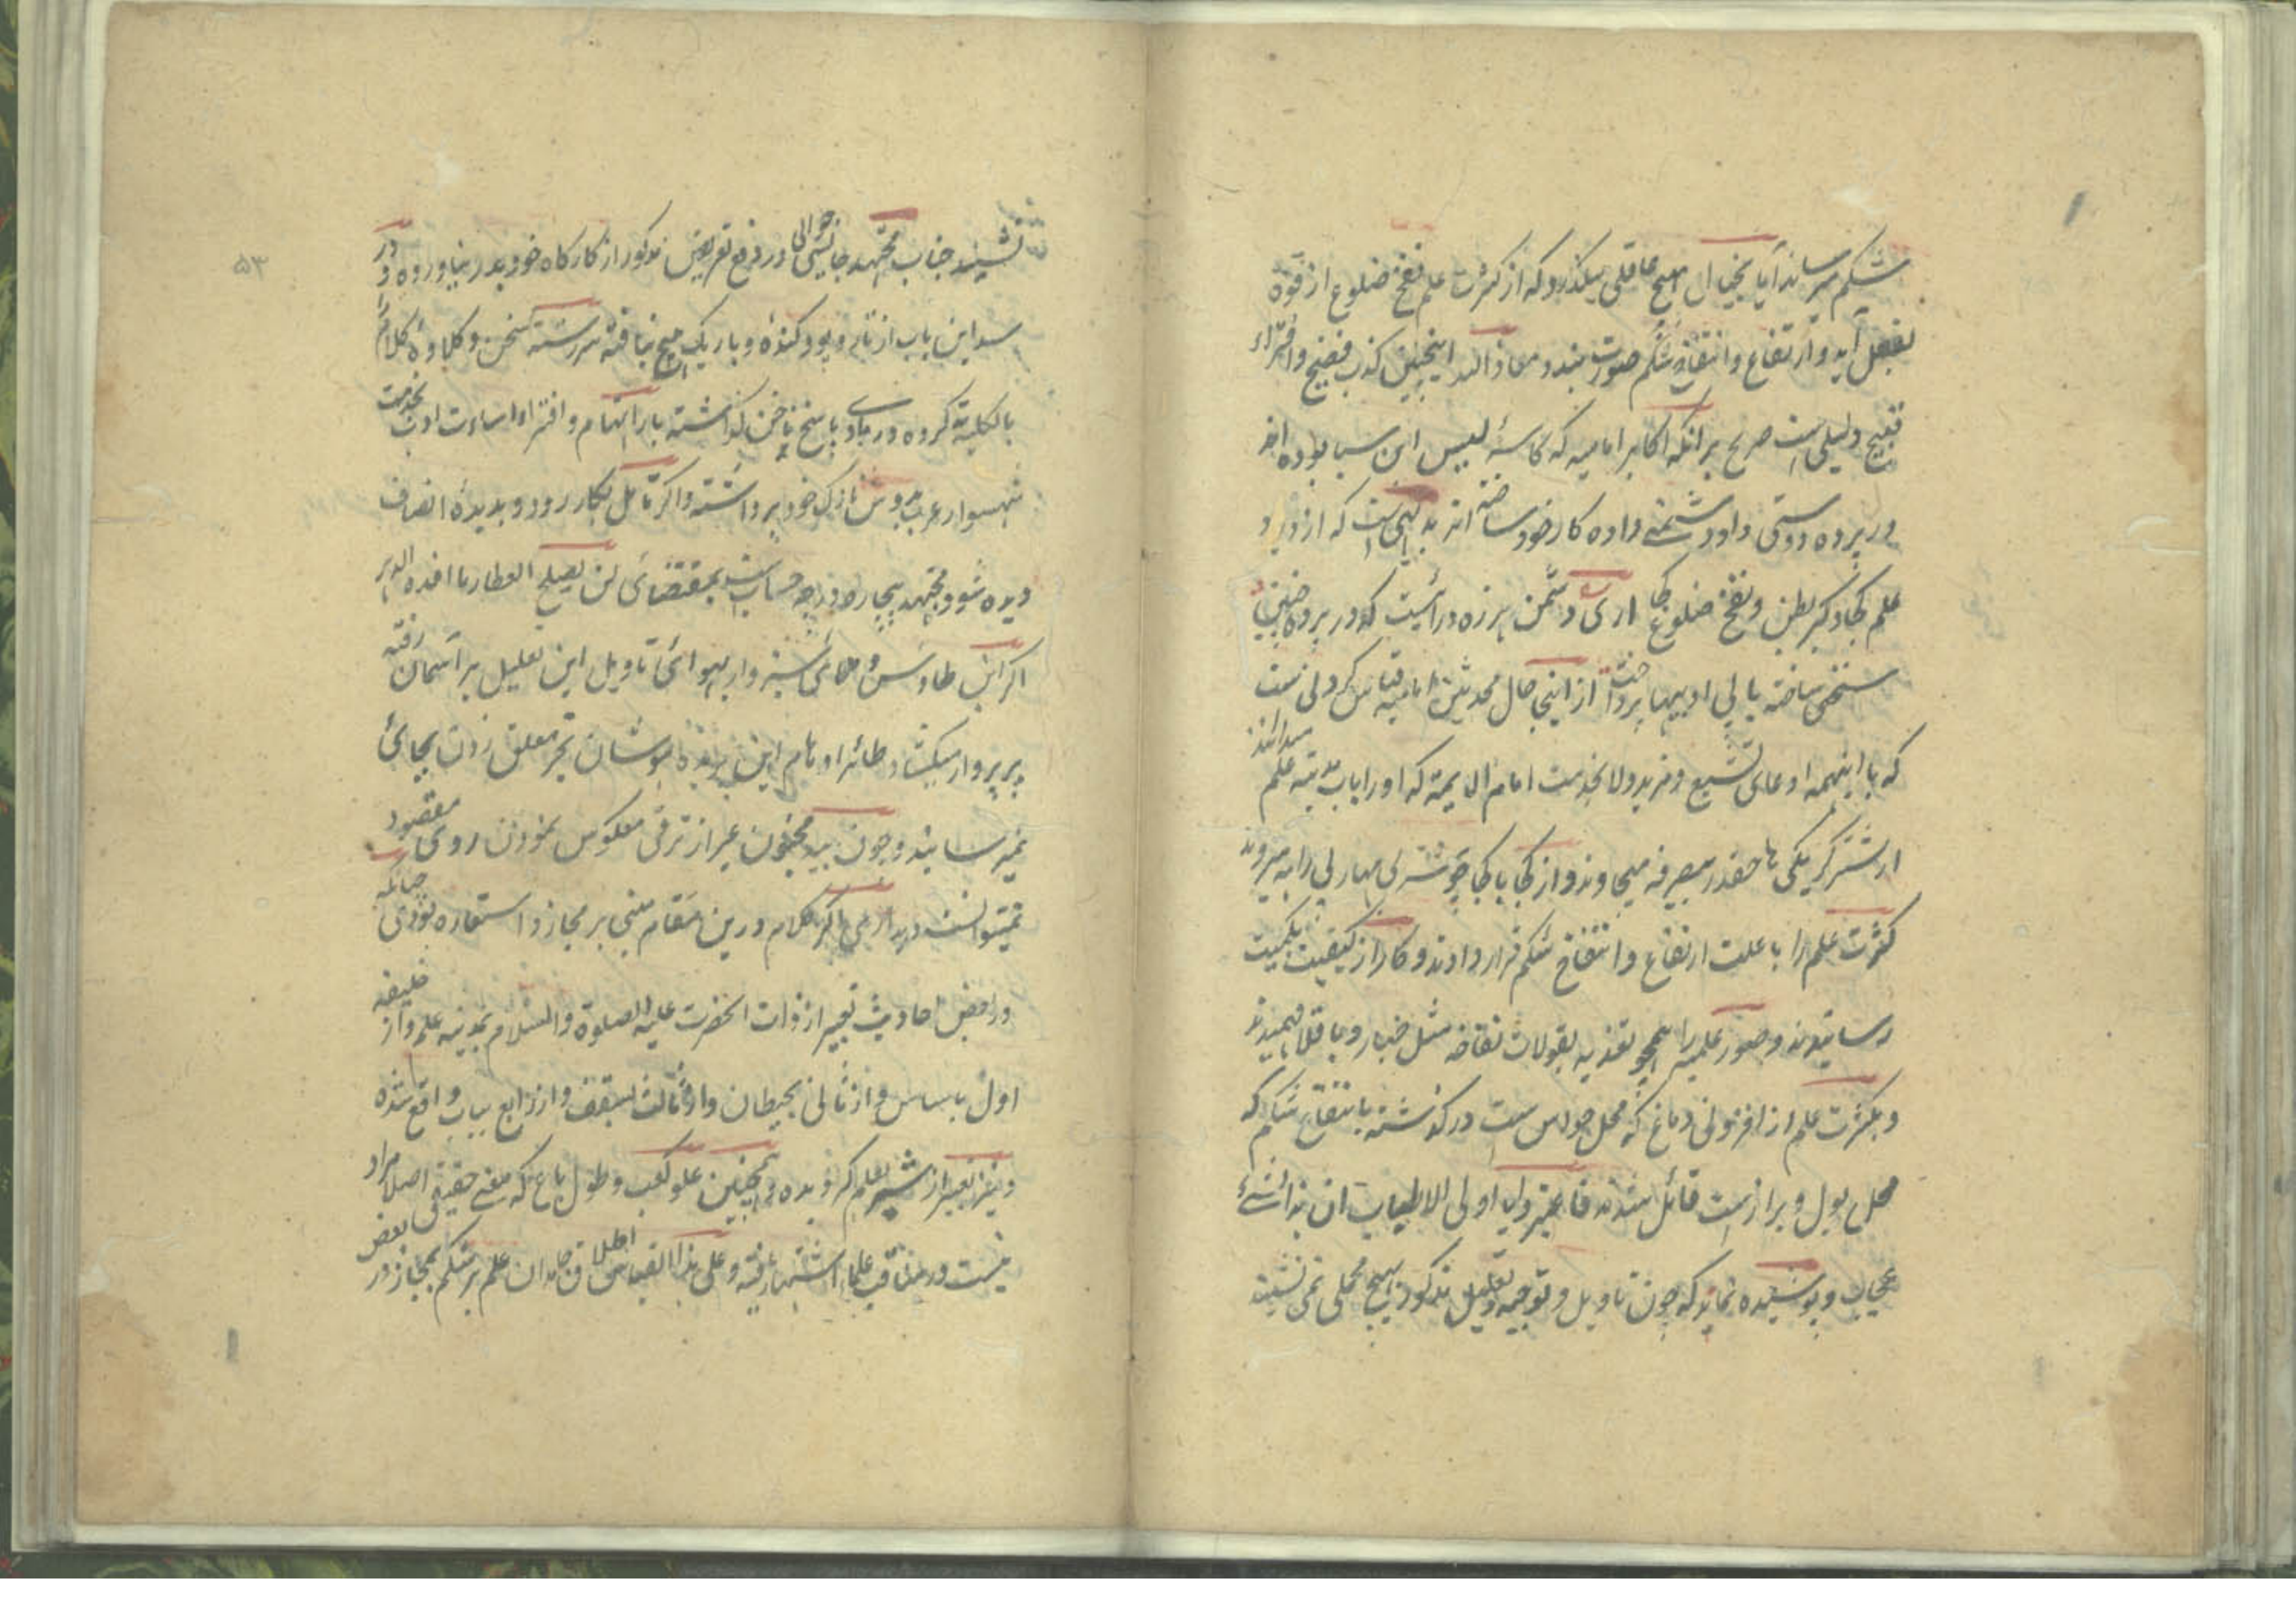 شکم میرساند آیا بخیال هیچ عاقلی میگذرد که از کثرت علم نفخ ضلوع از قوة
بفعل آید و ارتفاع و انتفاخ شکم صورت بندد معاذ الله اینچنین کذب فضیح و افتراء
قبیح دلیلی است صریح بر آنکه اکابر امامیه که کاسه لیس ابن سبا بوده اند
در پرده دوستی داد دشمنی داده کار خود ساخته اند بدیهی است که از دیاد
علم کجا و کبر بطن و نفخ ضلوع کجا اری دشمن هرزه درائیست که در پرده چنین
سخنی ساخته با بی ادبیها پرداخت از اینجا حال محدثین امامیه قیاس کردنی ست
که با اینهمه ادعای تشیع و مزید ولا بخدمت امام الایمة که او را باب مدینه علم میدانند
از شتر گربگی ها چقدر بیصرفه میجاوند و از کجا تا کجا چو شتر بی مهار بی راهه میروند
کثرت علم را با علت ارتفاع و انتفاخ شکم قرار دادند و کار از کیفیت بکمیت
رسانیدند و صور علمیه را همچو تغذیه بقولات نفاخه مثل خیار و باقلا فهمیدند
و بکثرت علم از افزونی دماغ که محل حواس ست در گذشته بانتفاخ شکم که
محل بول و براز ست قائل شدند فاعتبروا یا اولی الالباب ان هذا لشیء
عجاب و پوشیده نماند که چون تاویل و توجیه و تعلیل مذکور هیچ محلی نمی نشیند
نشیند جناب مجتهد جائسی جوابی در دفع تعریض مذکور از کارگاه خود بدر نیاورده و در
سد این باب از تار و پود کنده و باریک هیچ نیافته سررشته سخن و کلاوه کلام را
بالکلیة گرو در بادی پاسخ ناخن گذاشته بار اتهام و افتراء اساءت ادب بخدمت
شهسوار عرب بدوش نازک خود برداشته و اگر تامل بکار رود و بدیده انصاف
دیده شود مجتهد بیچاره در چه حساب است بمقتضای لن یصلح العطار ما افسده الدهر
اگر ابن طاوس و همای سبزوار بهوای تاویل این تعلیل بر آسمان رفته
پر پرواز میکشاد طائر اوهام این بیهوده کوشان بجز معلق زدن بجائی
نمیرسانید و چون بید مجنون غیر از ترقی معکوس نمودن روی مقصود
نمیتوانست دید اری اگر کلام درین مقام مبنی بر مجاز و استعاره بودی چنانکه
در بعض احادیث تعبیر از ذات آنحضرت علیه الصلوة والسلام بمدینه علم و از خلیفه
اول باساس و از ثانی بحیطان و از ثالث بسقف و از رابع بباب واقع شده
و نیز تعبیر از شیر بعلم کردیده و همچنین علو کعب و طول باع که معنی حقیقی اصلا مراد
نیست در مناقب علماء اشتهار یافته و علی هذا القیاس اطلاق جامدان علم بر شکم بمجاز در بعض
۵۳